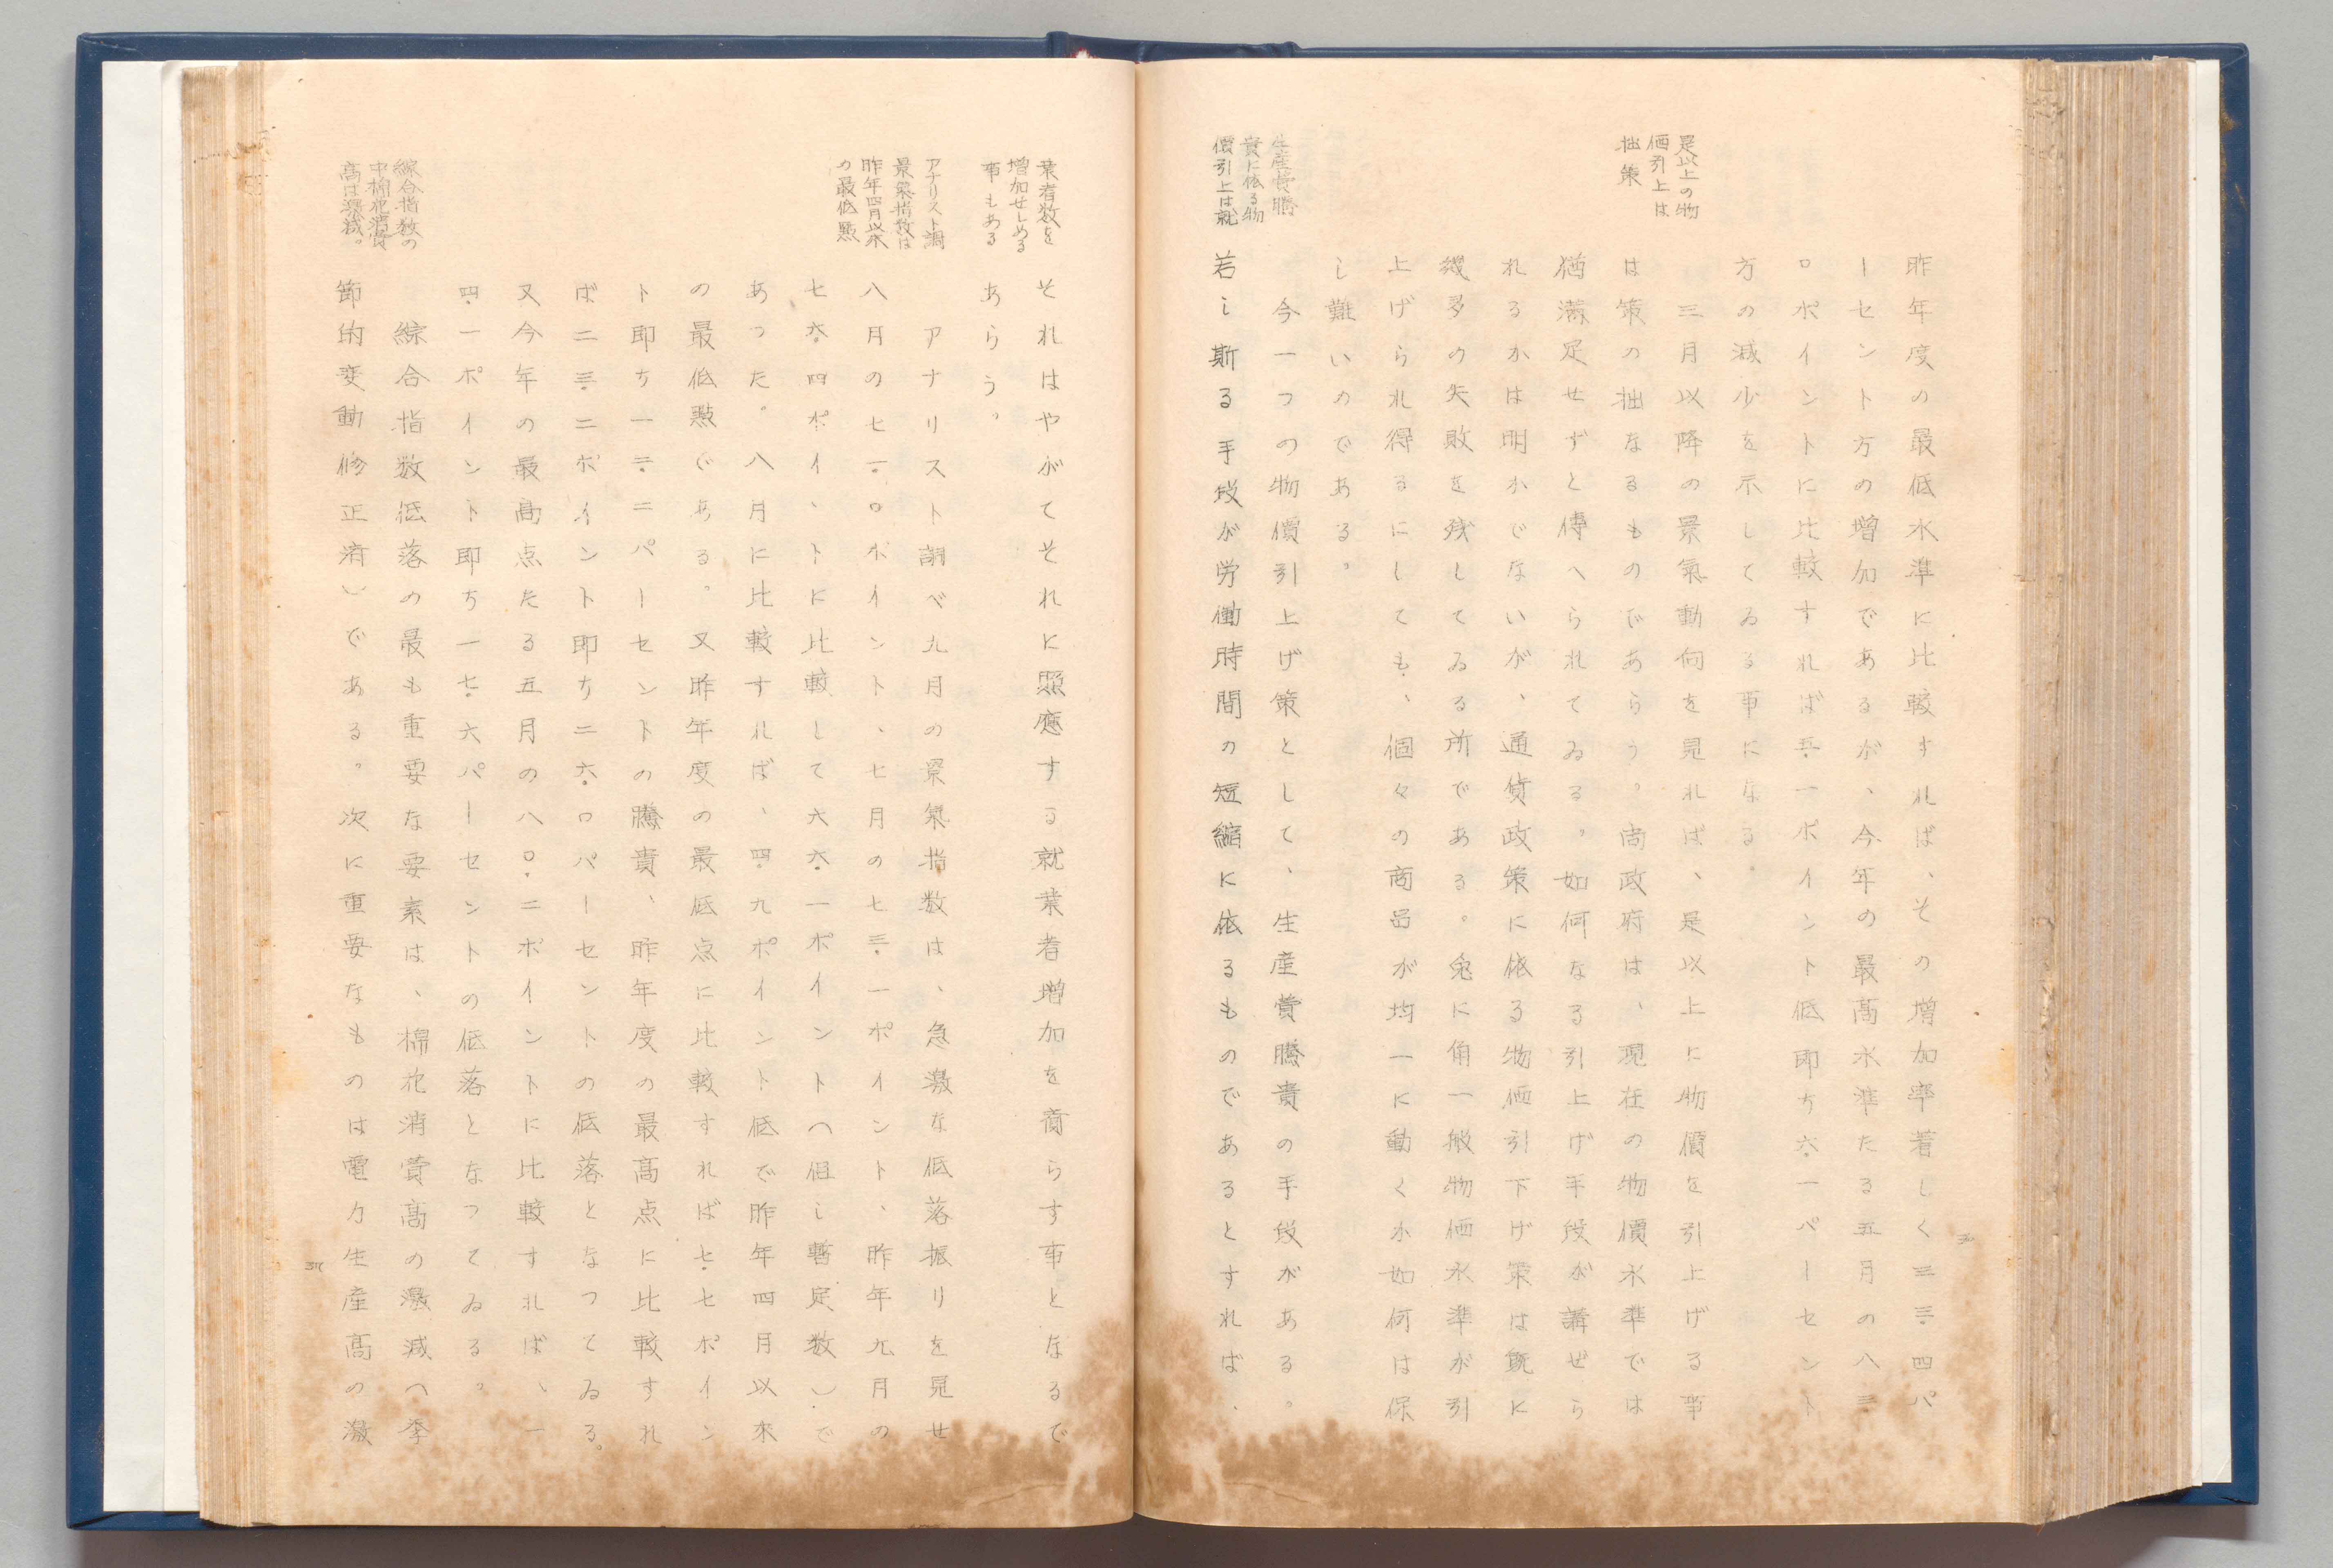 昨年度の最低水準に比較すれば、その増加率著しく三三・四パ
ーセント方の増加であるが、今年の最高水準たる五月の八三・
〇ポイントに比較すれば五・一ポイント低即ち六・一パーセント
方の減少を示してゐる事になる。
是以上の物
価引上は
拙策
三月以降の景気動向を見れば、是以上に物價を引上げる事
は策の拙なるものであらう。尚政府は、現在の物價水準では
猶満足せずと傳へられてゐる。如何なる引上げ手段が講ぜら
れるかは明かでないが、通貨政策に依る物価引下げ策は既に
幾多の失敗を残してゐる所である。兎に角一般物価水準が引
上げられ得るにしても、個々の商品が均一に動くか如何は保
し難いのである。
生産費騰
貴に依る物
價引上は就
今一つの物價引上げ策として、生産費騰貴の手段がある。
若し斯る手段が労働時間の短縮に依るものであるとすれば、
30
業者数を
増加せしめる
事もある
それはやがてそれに照應する就業者増加を齎らす事となるで
あらう。
アナリスト調
景氣指数は
昨年四月以来
の最低點
アナリスト調べ九月の景氣指数は、急激な低落振りを見せ
八月の七一・〇ポイント、七月の七三・一ポイント、昨年九月の
七六・四ポイントに比較して六六・一ポイント(但し暫定数)で
あつた。八月に比較すれば、四・九ポイント低で昨年四月以來
の最低點である。又昨年度の最低点に比較すれば七・七ポイン
ト即ち一三・二パーセントの騰貴、昨年度の最高点に比較すれ
ば二三・二ポイント即ち二六・〇パーセントの低落となつてゐる。
又今年の最高点たる五月の八〇・二ポイントに比較すれば、一
四・一ポイント即ち一七・六パーセントの低落となつてゐる。
綜合指数の
中棉花消費
高は激減。
綜合指数低落の最も重要な要素は、棉花消費高の激減(季
節的変動修正済)である。次に重要なものは電力生産高の激